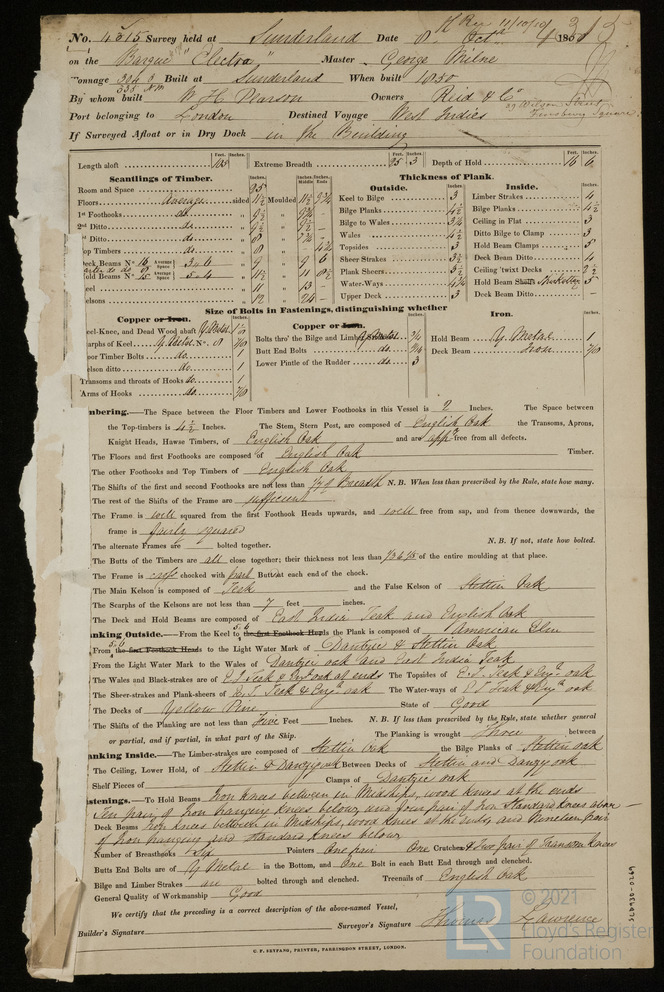 No. 4815 Survey held at Sunderland Date 8th Octr 1850
on the Barque "Electra" Master George Milne
Tonnage Built at Sunderland When built 1850
By whom built W H Pearson Owners Reid & Co
Port belonging to London Destined Voyage West Indies
If Surveyed Afloat or in Dry Dock in the Building
Length aloft Feet. Inches. Extreme Breadth Feet. Inches. 25 3 Depth of Hold Feet. Inches. 16 6
Scantlings of Timber.
Room and Space
Floors Average sided Moulded
1st Foothooks do
2nd Ditto do
3rd Ditto do
Top Timbers do
Deck Beams No. 16 Average Space 3 - 6 9 9 6
Hold Beams No. 15 Average Space 5 - 4
Keel 11 13
Kelsons 12
Thickness of Plank.
Outside.
Keel to Bilge 3
Bilge Planks 4½
Bilge to Wales
Wales 4½
Topsides 3
Sheer Strakes
Plank Sheers
Water-Ways 4½
Upper Deck 3
Inside.
Limber Strakes 4
Bilge Planks 4½
Ceiling in Flat 3
Ditto Bilge to Clamp 3
Hold Beam Clamps 5
Deck Beam Ditto 4
Ceiling 'twixt Decks 2½
Hold Beam Shelf 5
Deck Beam Ditto
Size of Bolts in Fastenings, distinguishing whether
Copper or Iron.
Heel-Knee, and Dead Wood abaft Y. Metal
Scarphs of Keel Y. Metal No. 8
Floor Timber Bolts do. 1
Kelson ditto do. 1
Transoms and throats of Hooks do. 1
Arms of Hooks do.
Copper or Iron.
Bolts thro' the Bilge and Limber Y. Metal
Butt End Bolts do.
Lower Pintle of the Rudder do. 3
Iron.
Hold Beam Y. Metal 1
Deck Beam Iron
Timbering.—The Space between the Floor Timbers and Lower Foothooks in this Vessel is 2 Inches. The Space between
the Top-timbers is 4½ Inches. The Stem, Stern Post, are composed of English Oak the Transoms, Aprons,
Knight Heads, Hawse Timbers, of English Oak and are app free from all defects.
The Floors and first Foothooks are composed of English Oak Timber.
The other Foothooks and Top Timbers of English Oak
The Shifts of the first and second Foothooks are not less than Breadth N.B. When less than prescribed by the Rule, state how many.
The rest of the Shifts of the Frame are sufficient
The Frame is well squared from the first Foothook Heads upwards, and well free from sap, and from thence downwards, the
frame is fairly squared
The alternate Frames are bolted together. N.B. If not, state how bolted.
The Butts of the Timbers are all close together; their thickness not less than of the entire moulding at that place.
The Frame is chocked with Butt at each end of the chock.
The Main Kelson is composed of Teak and the False Kelson of Stettin Oak
The Scarphs of the Kelsons are not less than 7 feet inches.
The Deck and Hold Beams are composed of East India Teak and English Oak
Planking Outside.—From the Keel to the first Foothook Heads the Plank is composed of American Elm
From the first Foothook Heads to the Light Water Mark of Dantzic & Stettin Oak
From the Light Water Mark to the Wales of Dantzic oak and East India Teak
The Wales and Black-strakes are of E I Teak & Engh oak at ends The Topsides of E. I. Teak & Engh oak
The Sheer-strakes and Plank-sheers of E. I. Teak & Engh oak The Water-ways of E I Teak & Engh oak
The Decks of Yellow Pine State of Good
The Shifts of the Planking are not less than Five Feet Inches. N.B. If less than prescribed by the Rule, state whether general
or partial, and if partial, in what part of the Ship. The Planking is wrought Three between
Planking Inside.—The Limber-strakes are composed of Stettin Oak the Bilge Planks of Stettin oak
The Ceiling, Lower Hold, of Stettin & Dantzic oak Between Decks of Stettin and Dantzic oak
Shelf Pieces of Clamps of Dantzic oak
Fastenings.—To Hold Beams Iron knees between in Midships, wood knees at the ends
Ten pair of Iron hanging knees below, and four pair of Iron Standard knees above
Deck Beams Iron knees between in Midships, wood knees at the ends, and Nineteen pair
of Iron hanging and standard knees below
Number of Breasthooks Six Pointers One pair One Crutches & Two pair of Transom knees
Butts End Bolts are of Y Metal in the Bottom, and One Bolt in each Butt End through and clenched.
Bilge and Limber Strakes are bolted through and clenched. Treenails of English Oak
General Quality of Workmanship Good
We certify that the preceding is a correct description of the above-named Vessel,
Builder's Signature Surveyor's Signature Thomas Lawrence
C. F. SEYFANG, PRINTER, FARRINGDON STREET, LONDON.
© 2021
LR
Lloyd's Register
Foundation